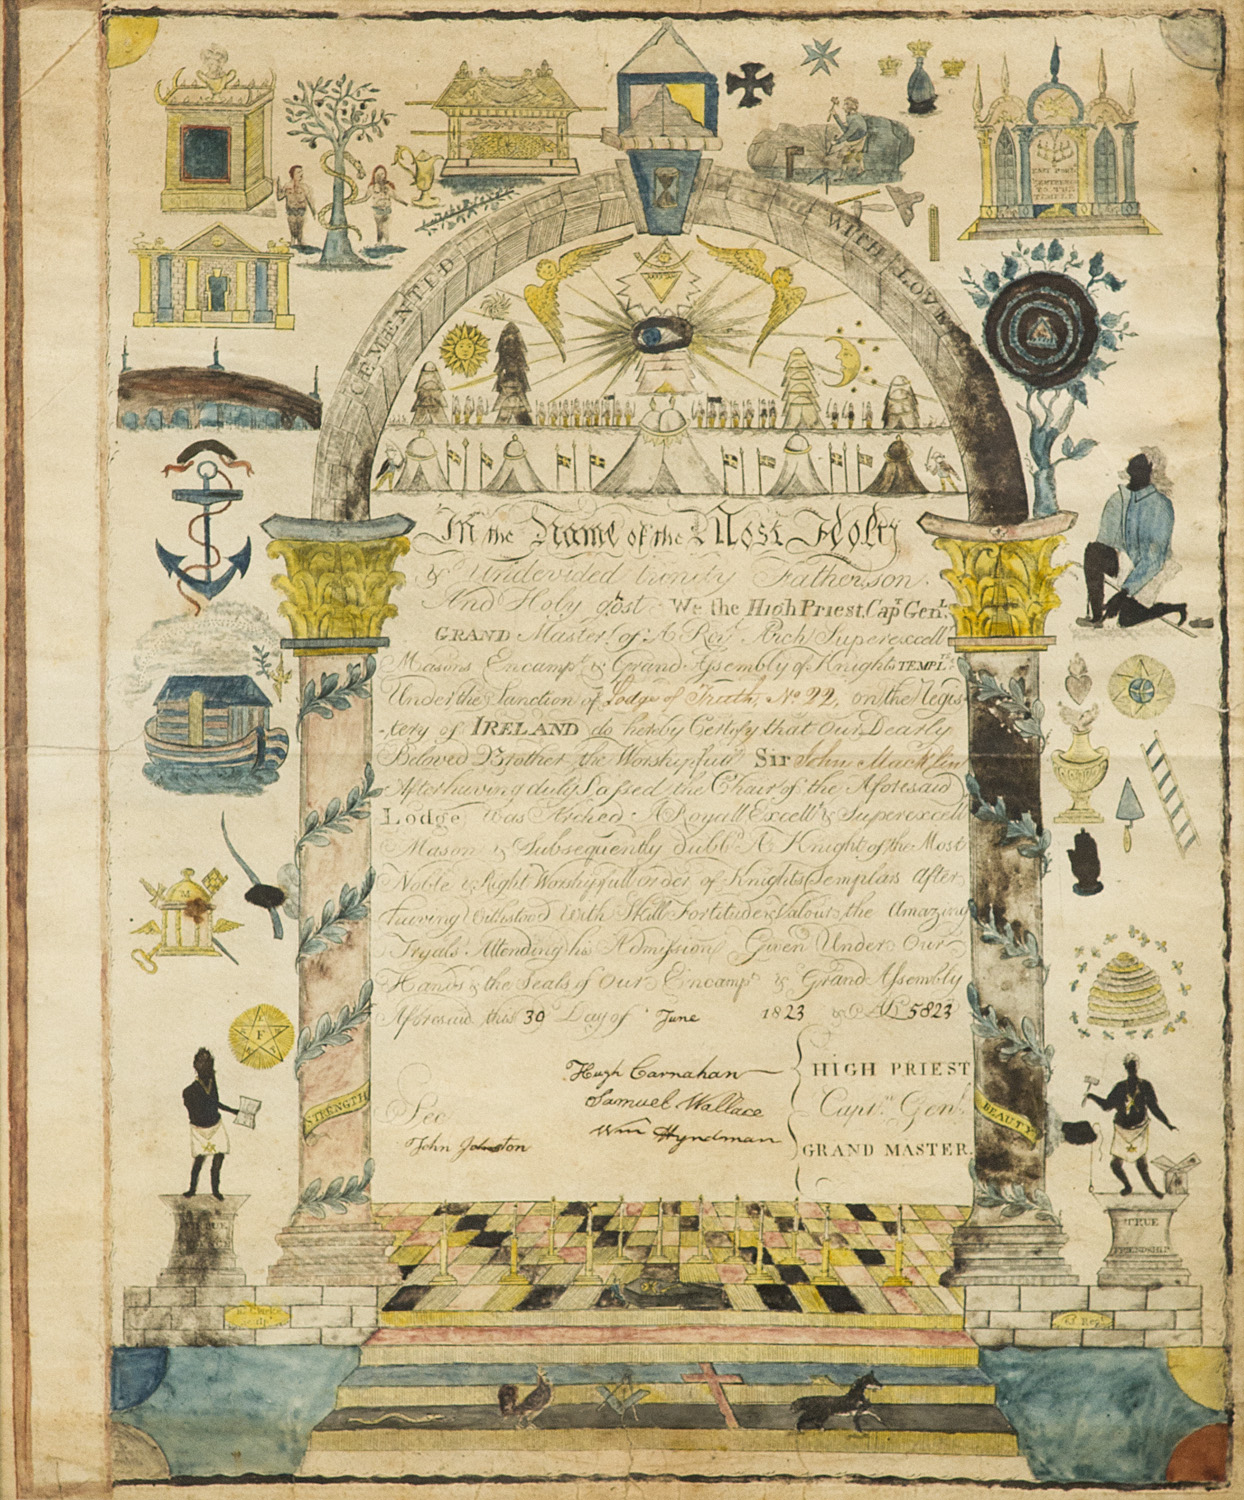 CEMENTED WITH LOVE
In the Name of the Most Holy
& Undevided trinity Father, son.
And Holy gost We the High Priest, Capt Genl,
GRAND Master, of A Royl Arch Superexcellt
Masons Encampt & Grand Assembly of Knights TEMPLrs
Under the Sanction of Lodge of Truth, No 22, on the Regis-
-tery of IRELAND do hereby Certify that Our Dearly
Beloved Brother the Worshipfull Sir John Macklin
After having duly Passed the Chair of the Aforesaid
Lodge, Was Arched A Royall Excellt & Superexcell
Mason & Subsequently dubbd A Knight of the Most
Noble & Right Worshipfull order of Knights Templars After
having Withstood With Skill Fortitude & Valour the Amazing
Tryals Attending his Admission Given Under Our
Hands & the Seals of Our Encampt & Grand Assembly
Aforesaid this 30 Day of June 1823 & AL 5823
Hugh Carnahan HIGH PRIEST
Samuel Wallace Captn Genl.
Sec
Wm Hyndman GRAND MASTER.
John Johnston
STRENGTH
BEAUTY
TRUE
FRIENDSHIP
M
F
TO THE
TEMPLE